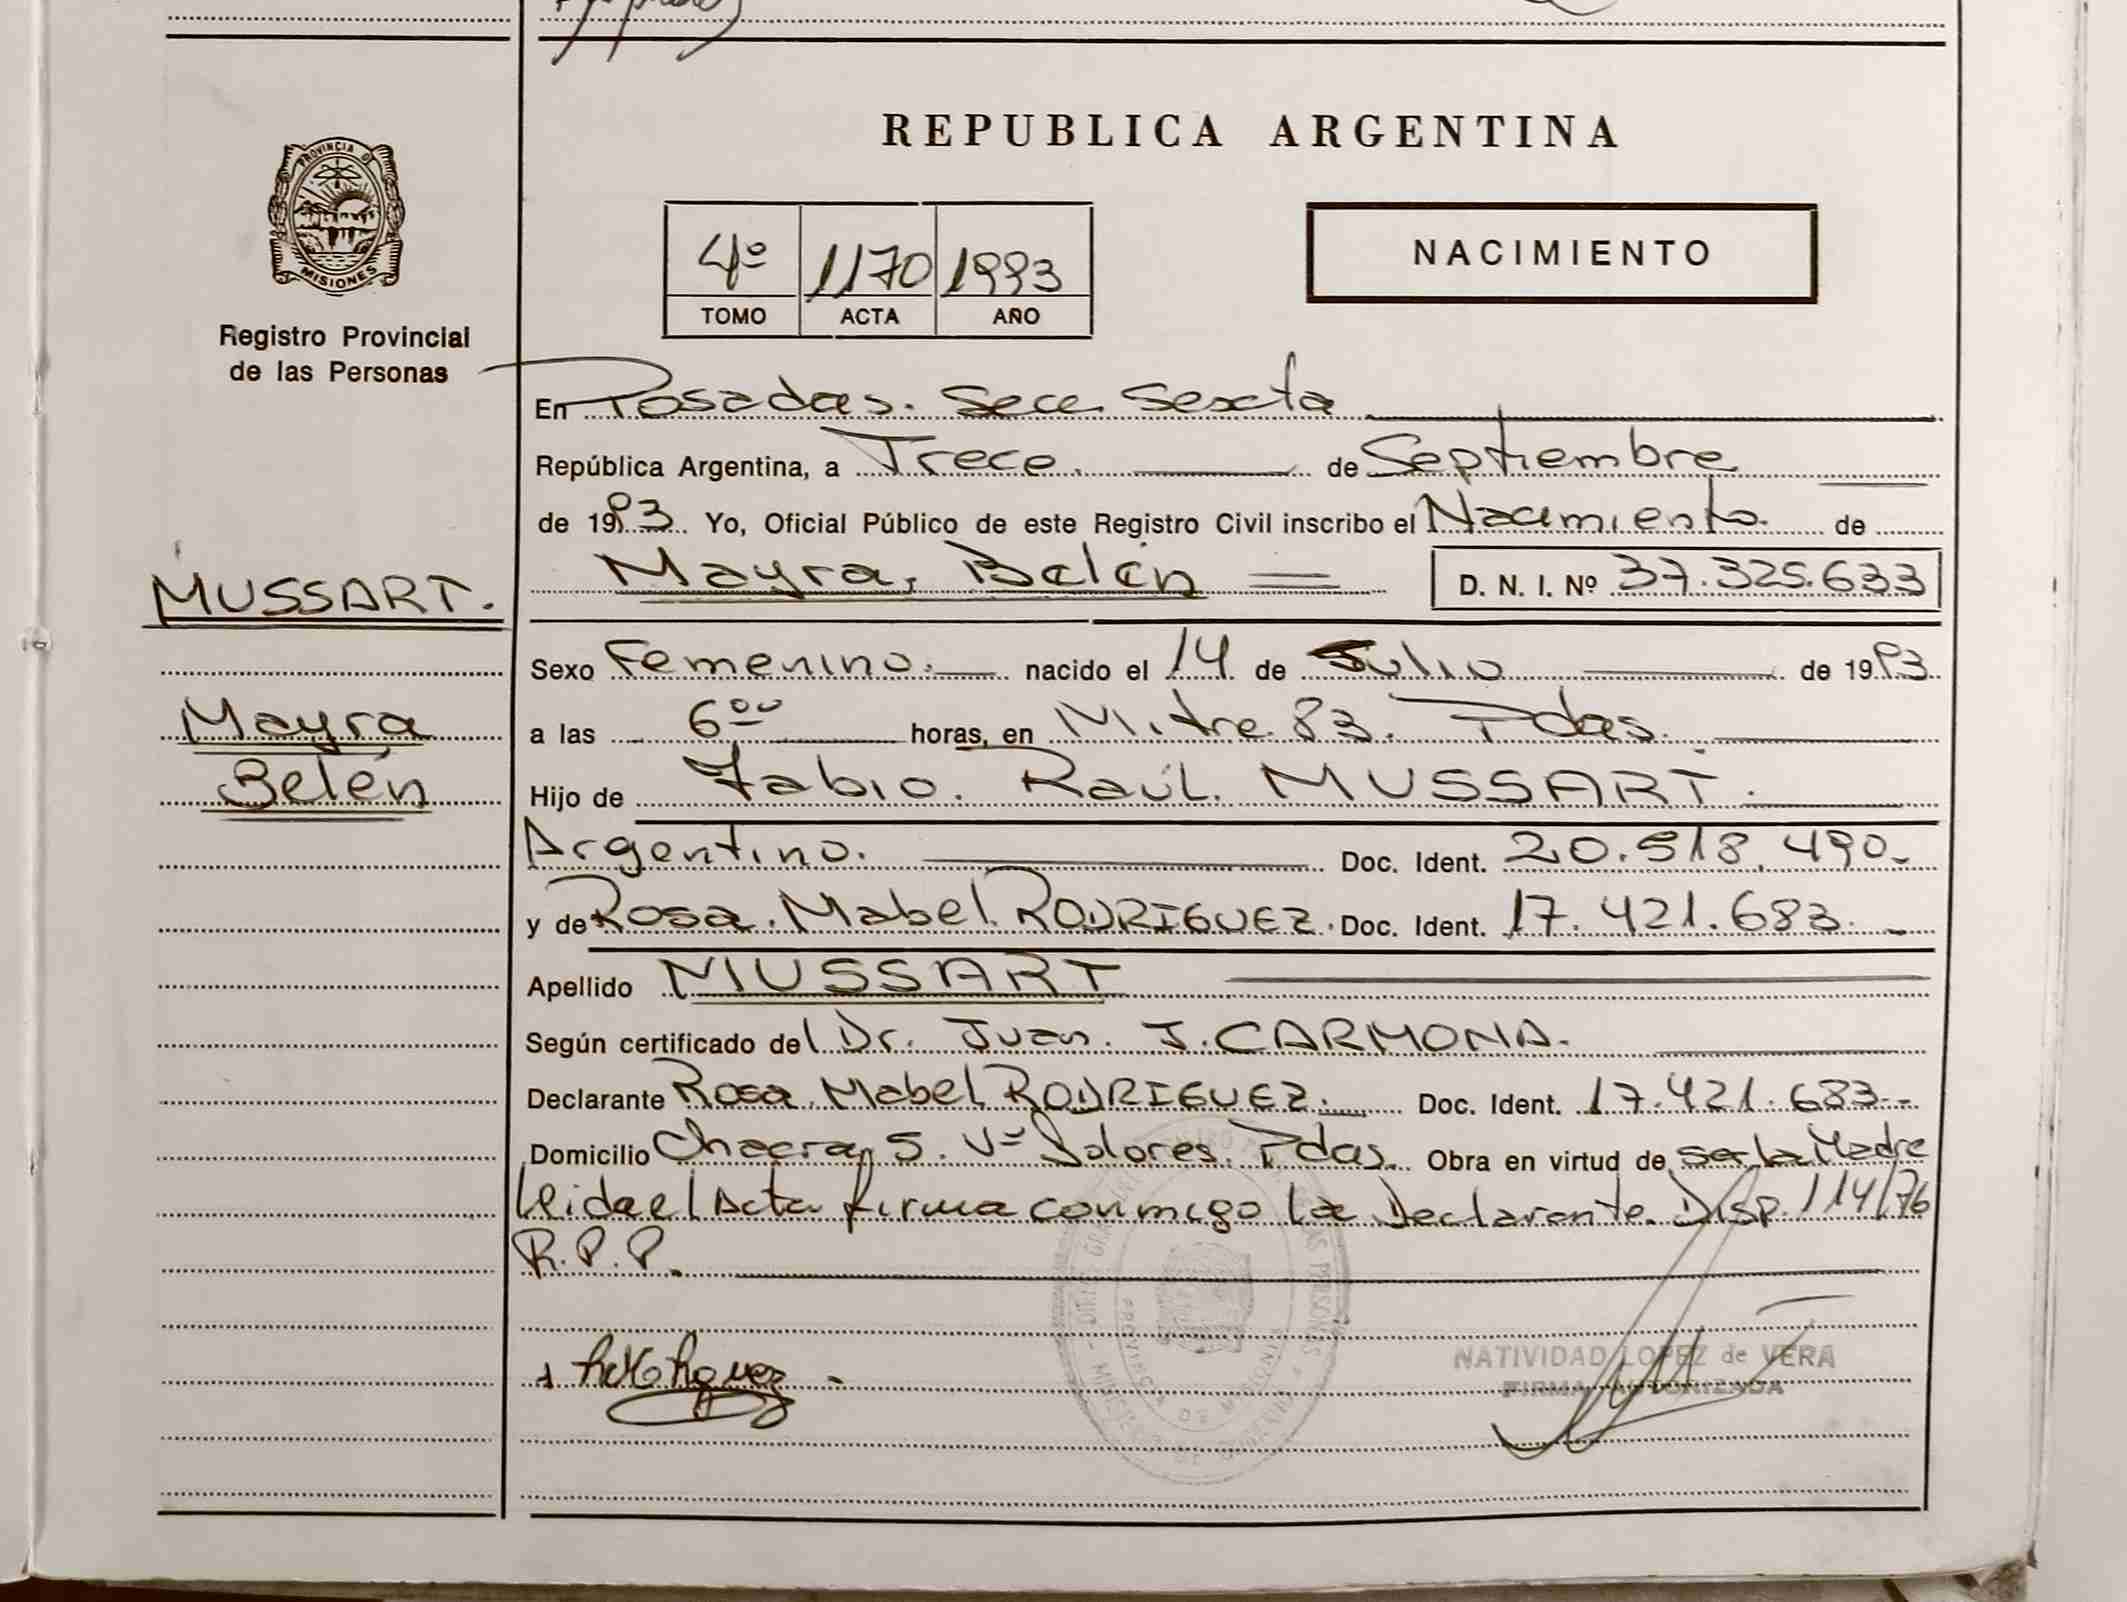 REPUBLICA ARGENTINA
PROVINCIA DE
MISIONES
Registro Provincial
de las Personas
4º 1170 1993
TOMO ACTA AÑO
NACIMIENTO
En Posadas. Secc. Sexta
República Argentina, a Trece. de Septiembre
de 1993 Yo, Oficial Público de este Registro Civil inscribo el Nacimiento de
Mayra, Belén D. N. I. Nº 37.325.633
MUSSART.
Sexo Femenino. nacido el 14 de Julio de 1993
Mayra
a las 6ºº horas, en Mitre 83. Pdas.
Belén
Hijo de Fabio. Raúl. MUSSART.
Argentino. Doc. Ident. 20.518.490.
y de Rosa. Mabel. RODRIGUEZ. Doc. Ident. 17.421.683.
Apellido MUSSART
Según certificado del Dr. Juan. J. CARMONA.
Declarante Rosa. Mabel RODRIGUEZ. Doc. Ident. 17.421.683.
Domicilio Chacra 5. Vª Dolores. Pdas. Obra en virtud de ser la Madre
leida el Acta firma conmigo la Declarante. Disp. 114/76
R.P.P.
NATIVIDAD LOPEZ de VERA
FIRMA AUTORIZADA
PROVINCIA DE MISIONES